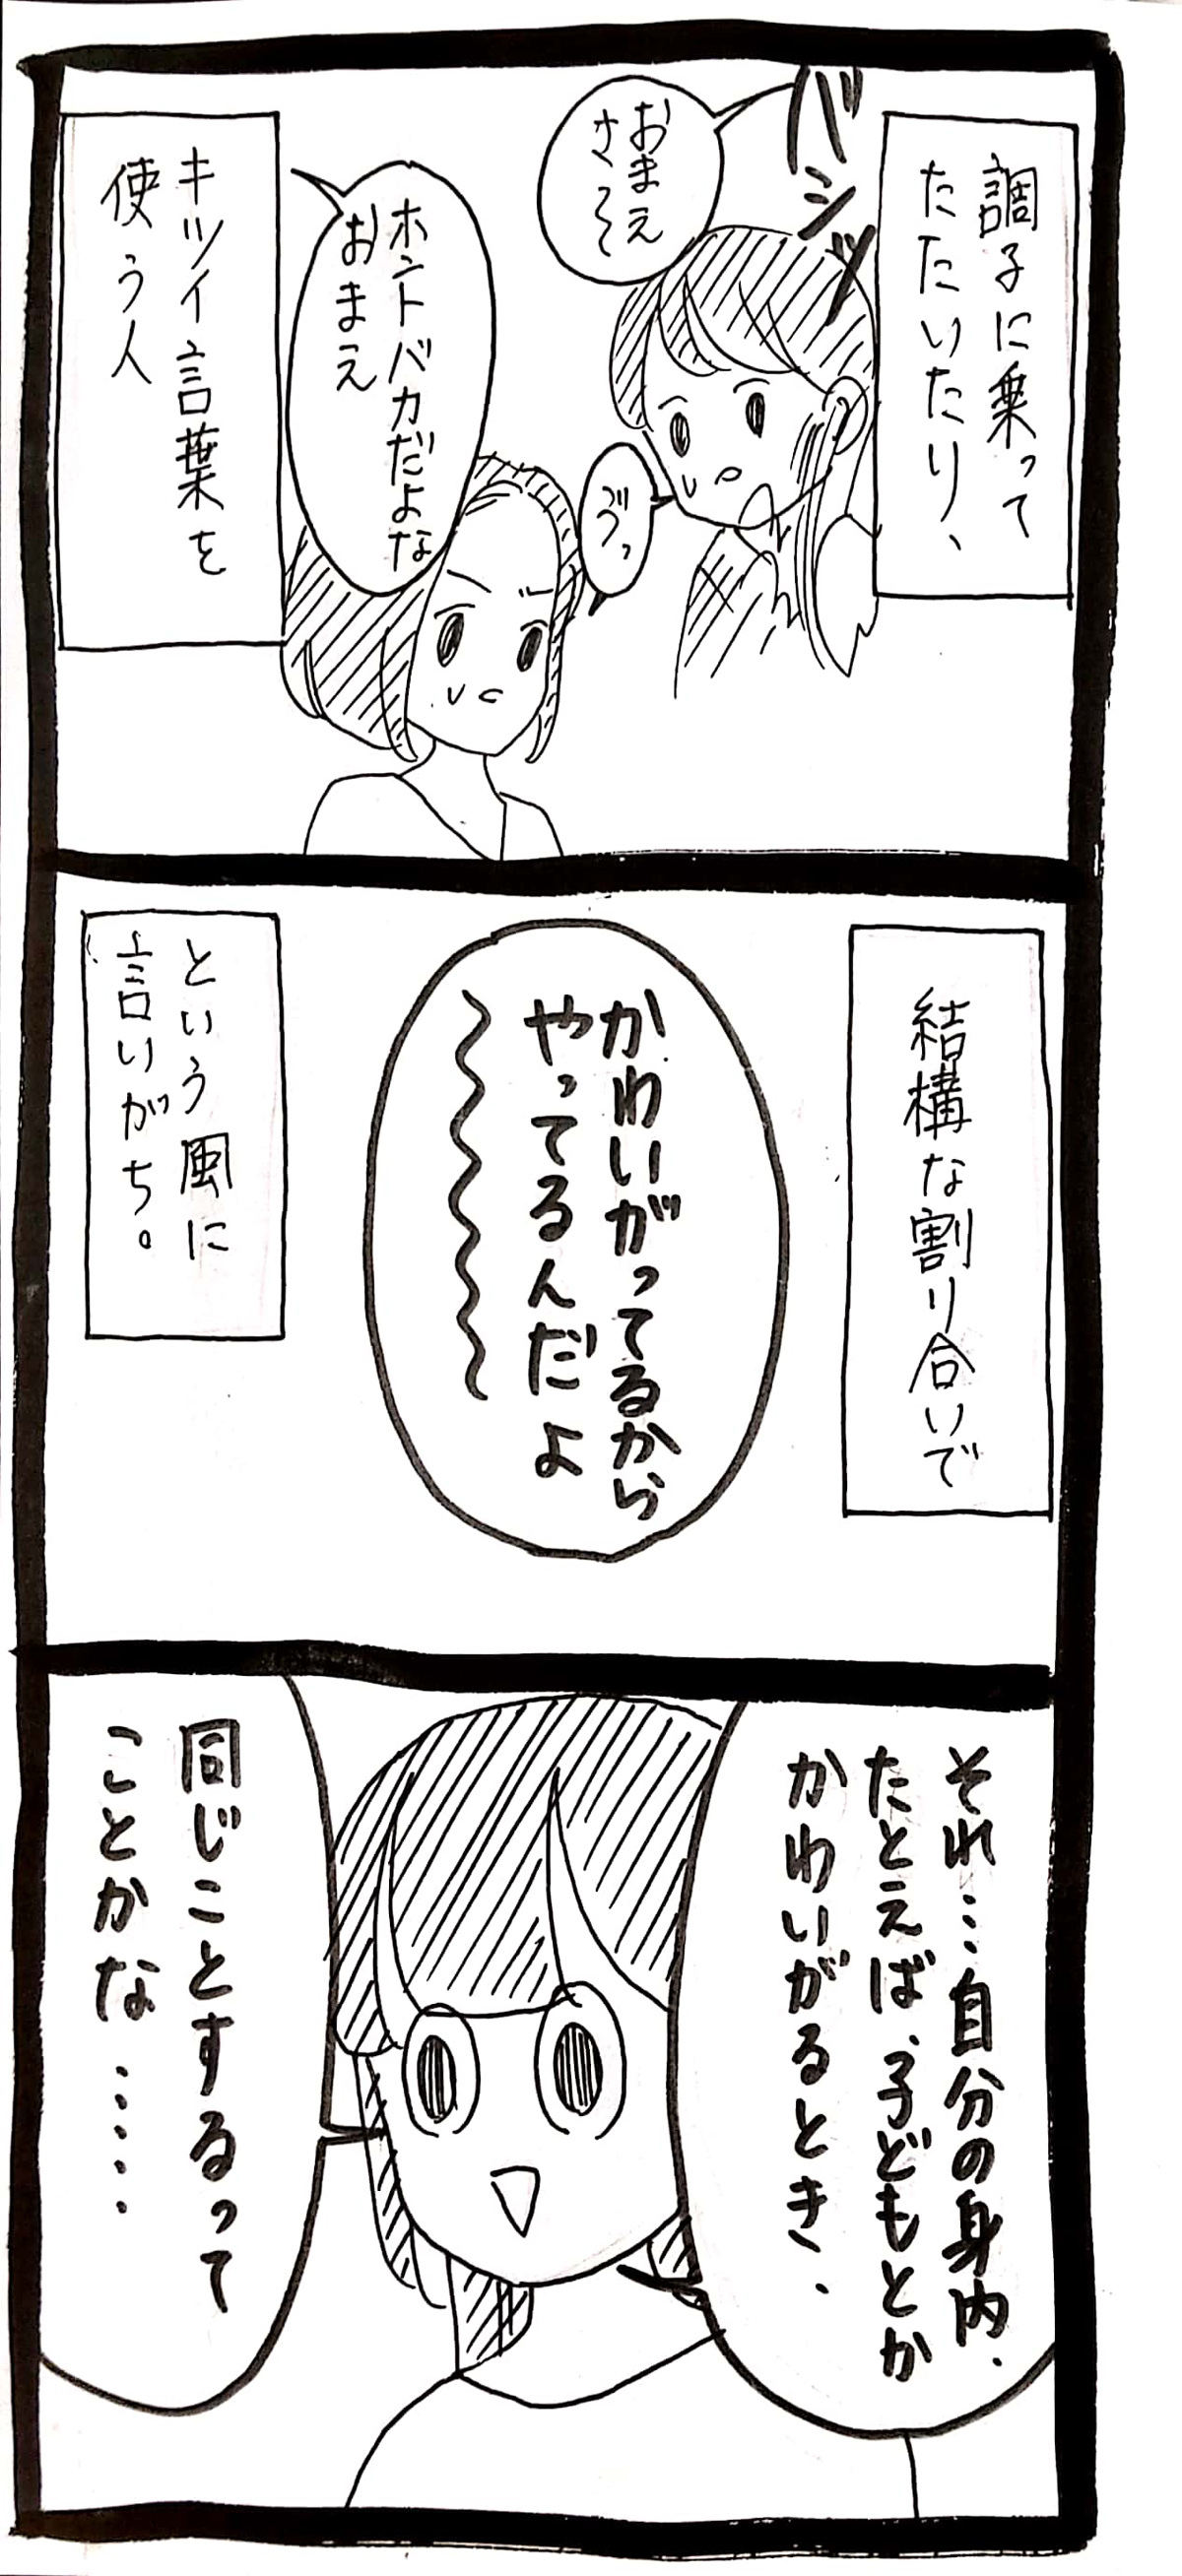 調子に乗って
たたいたり、
バシッ
おまえ
さ〜
ゔっ
ホントバカだよな
おまえ
キツイ言葉を
使う人
結構な割り合いで
かわいがってるから
やってるんだよ
という風に
言いがち。
それ…自分の身内、
たとえば、子どもとか
かわいがるとき、
同じことするって
ことかな……